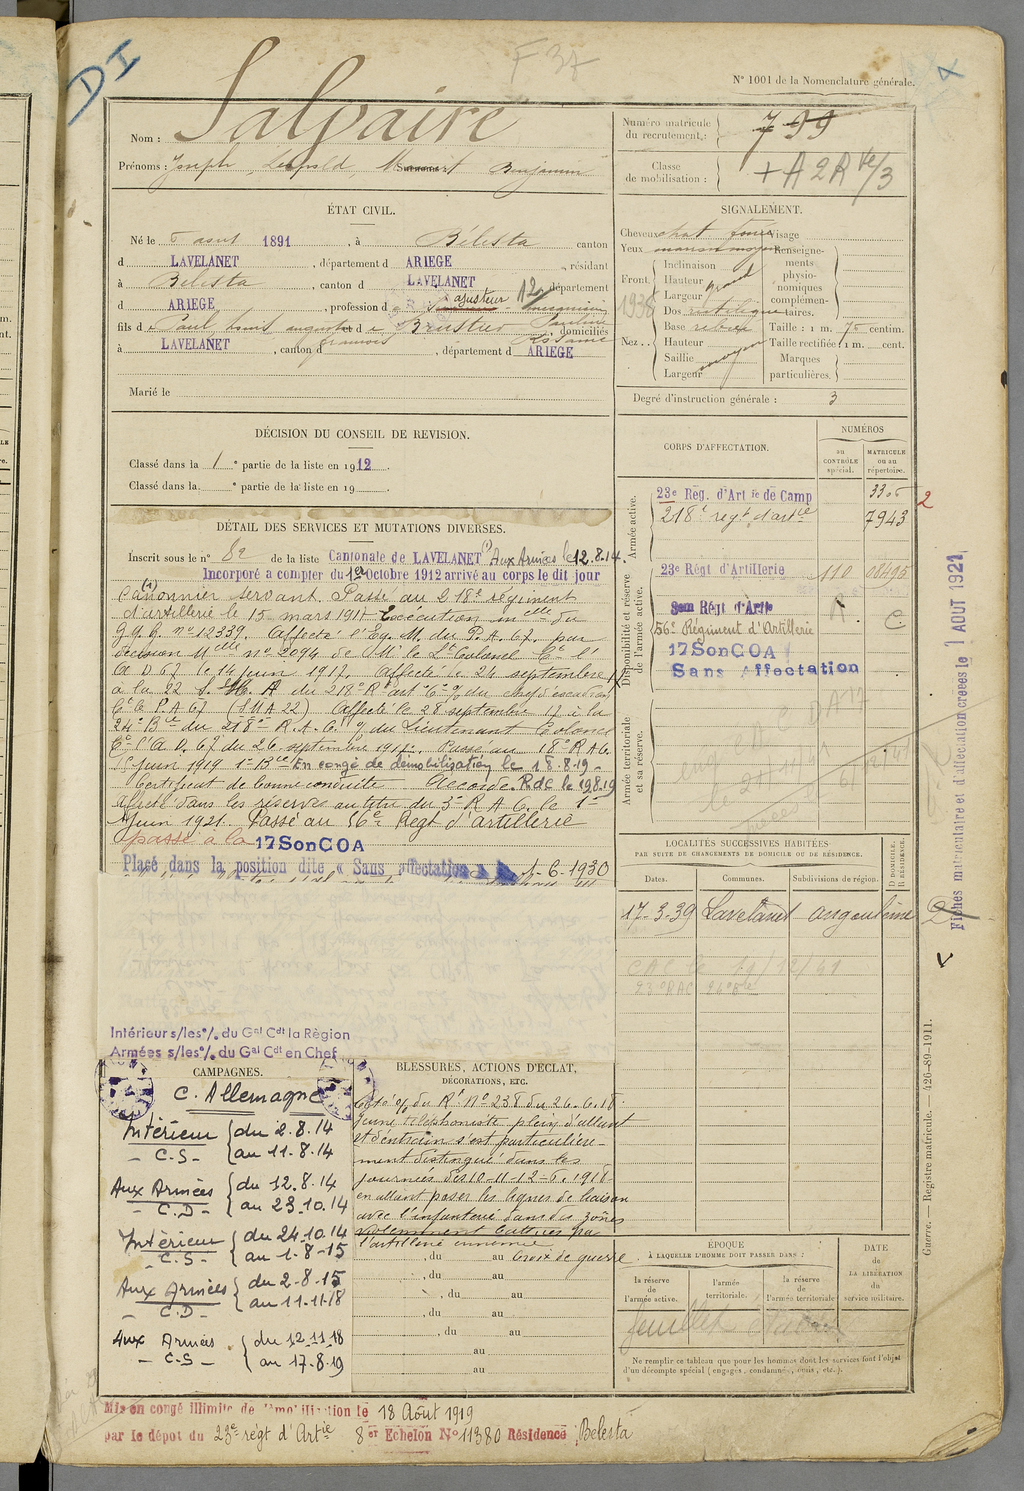 DI
F 37
N° 1001 de la Nomenclature générale.
Nom : Salvaire
Prénoms : Joseph, Léopold, Benjamin
Numéro matricule du recrutement : 799
Classe de mobilisation : + A 2 R
ÉTAT CIVIL.
Né le 5 août 1891, à Bélesta canton
d LAVELANET, département d ARIEGE, résidant
à Bélesta, canton d LAVELANET département
d ARIEGE, profession d ajusteur mecanicien
fils de Paul, Louis, auguste et de Brustier Pauline
domiciliés
à LAVELANET, canton d, département d ARIEGE
Marié le
SIGNALEMENT.
Cheveux chat foncé Visage
Yeux marron moyen Renseignements physionomiques complémentaires.
Front
Inclinaison
Hauteur grand
Largeur
1936
Nez
Dos rectiligne
Base
Hauteur
Saillie moyen
Largeur
Taille : 1 m. 70 centim.
Taille rectifiée : 1 m. cent.
Marques particulières.
Degré d'instruction générale : 3
DÉCISION DU CONSEIL DE REVISION.
Classé dans la 1e partie de la liste en 1912
Classé dans la e partie de la liste en 19
DÉTAIL DES SERVICES ET MUTATIONS DIVERSES.
Inscrit sous le n° 82 de la liste Cantonale de LAVELANET (1) Aux Armées le 12.8.14.
Incorporé a compter du 1er Octobre 1912 arrivé au corps le dit jour
(1) Canonnier servant. Passé au 218e régiment
d'artillerie le 15 mars 1917 Exécution du
G.Q.G. n° 12339. Affecté du P.A. 67. par
décision n° 2094 de Mr le Lt Colonel Ct l'
A D 67 le 14 juin 1917. Affecté le 24 septembre 17
à la 22 S.M.A du 218e R art
Ct P A 67 (S M A 22) Affecté le 28 septembre 17 à la
24e Bie du 218e R.A.C. o/ du Lieutenant Colonel
Ct l'A D. 67 du 26 septembre 1917. Passé au 18e R A C.
Juin 1919 1e Bie En congé de démobilisation le 18-8-19-
Certificat de bonne conduite Accordé. RdC le 19819
affecté dans les réserves au titre du 3e R A C. le 1er
Juin 1921. Passé au 56e Regt d'artillerie
passé à la 17SonCOA
Placé dans la position dite « Sans affectation » 6-1930
CORPS D'AFFECTATION.
NUMÉROS
AU CONTRÔLE spécial.
MATRICULE ou au répertoire.
Armée active.
23e Rég. d'Art ie de Camp
218e regt d'artie 7943
2
Disponibilité et réserve de l'armée active.
23e Régt d'Artillerie 110
Régt d'Artie R
56e Régiment d'Artillerie C
17SonCOA
Sans Affectation
Armée territoriale et sa réserve.
LOCALITÉS SUCCESSIVES HABITÉES
PAR SUITE DE CHANGEMENTS DE DOMICILE OU DE RÉSIDENCE.
Dates. Communes. Subdivisions de région. D DOMICILE. R RÉSIDENCE.
17-3-39 Lavelanet angoulême
C A C le 11/12/41
Fiches matriculaire et d'affectation creees le 1 AOUT 1921
Intérieur s/les°/. du Gal Cdt la Région
Armées s/les°/. du Gal Cdt en Chef
CAMPAGNES.
C. Allemagne
Intérieur - C.S- { du 2.8.14 au 11.8.14
Aux Armées - C.D- { du 12.8.14 au 23.10.14
Intérieur - C.S- { du 24.10.14 au 1.8-15
Aux Armées C.D- { du 2-8-15 au 11-11-18
Aux Armées - C-S- { du 12.11.18 au 17.8.19
BLESSURES, ACTIONS D'ÉCLAT,
DÉCORATIONS, ETC.
Cité o/ du Rt N° 238 du 26.6.18
Jeune téléphoniste plein d'allant
et d'entrain s'est particulière-
ment distingué dans les
journées des 10-11-12-6.1918
en allant poser les lignes de liaison
avec l'infanterie dans des zônes
violemment battues par
l'artillerie ennemie
, du au Croix de guerre
, du au
, du au
, du au
, du au
au
au
ÉPOQUE
À LAQUELLE L'HOMME DOIT PASSER DANS :
la réserve de l'armée active.
l'armée territoriale.
la réserve de l'armée territoriale
DATE de LA LIBÉRATION du service militaire.
feuillet
Ne remplir ce tableau que pour les hommes dont les services font l'objet
d'un décompte spécial (engagés, condamnés, omis, etc.).
Guerre. — Registre matricule. — 426-89-1911.
Mis en congé illimité de démobilisation le 18 Août 1919
par le dépot du 23e régt d'Artie 8 er Echelon N° 11380 Résidence Belesta